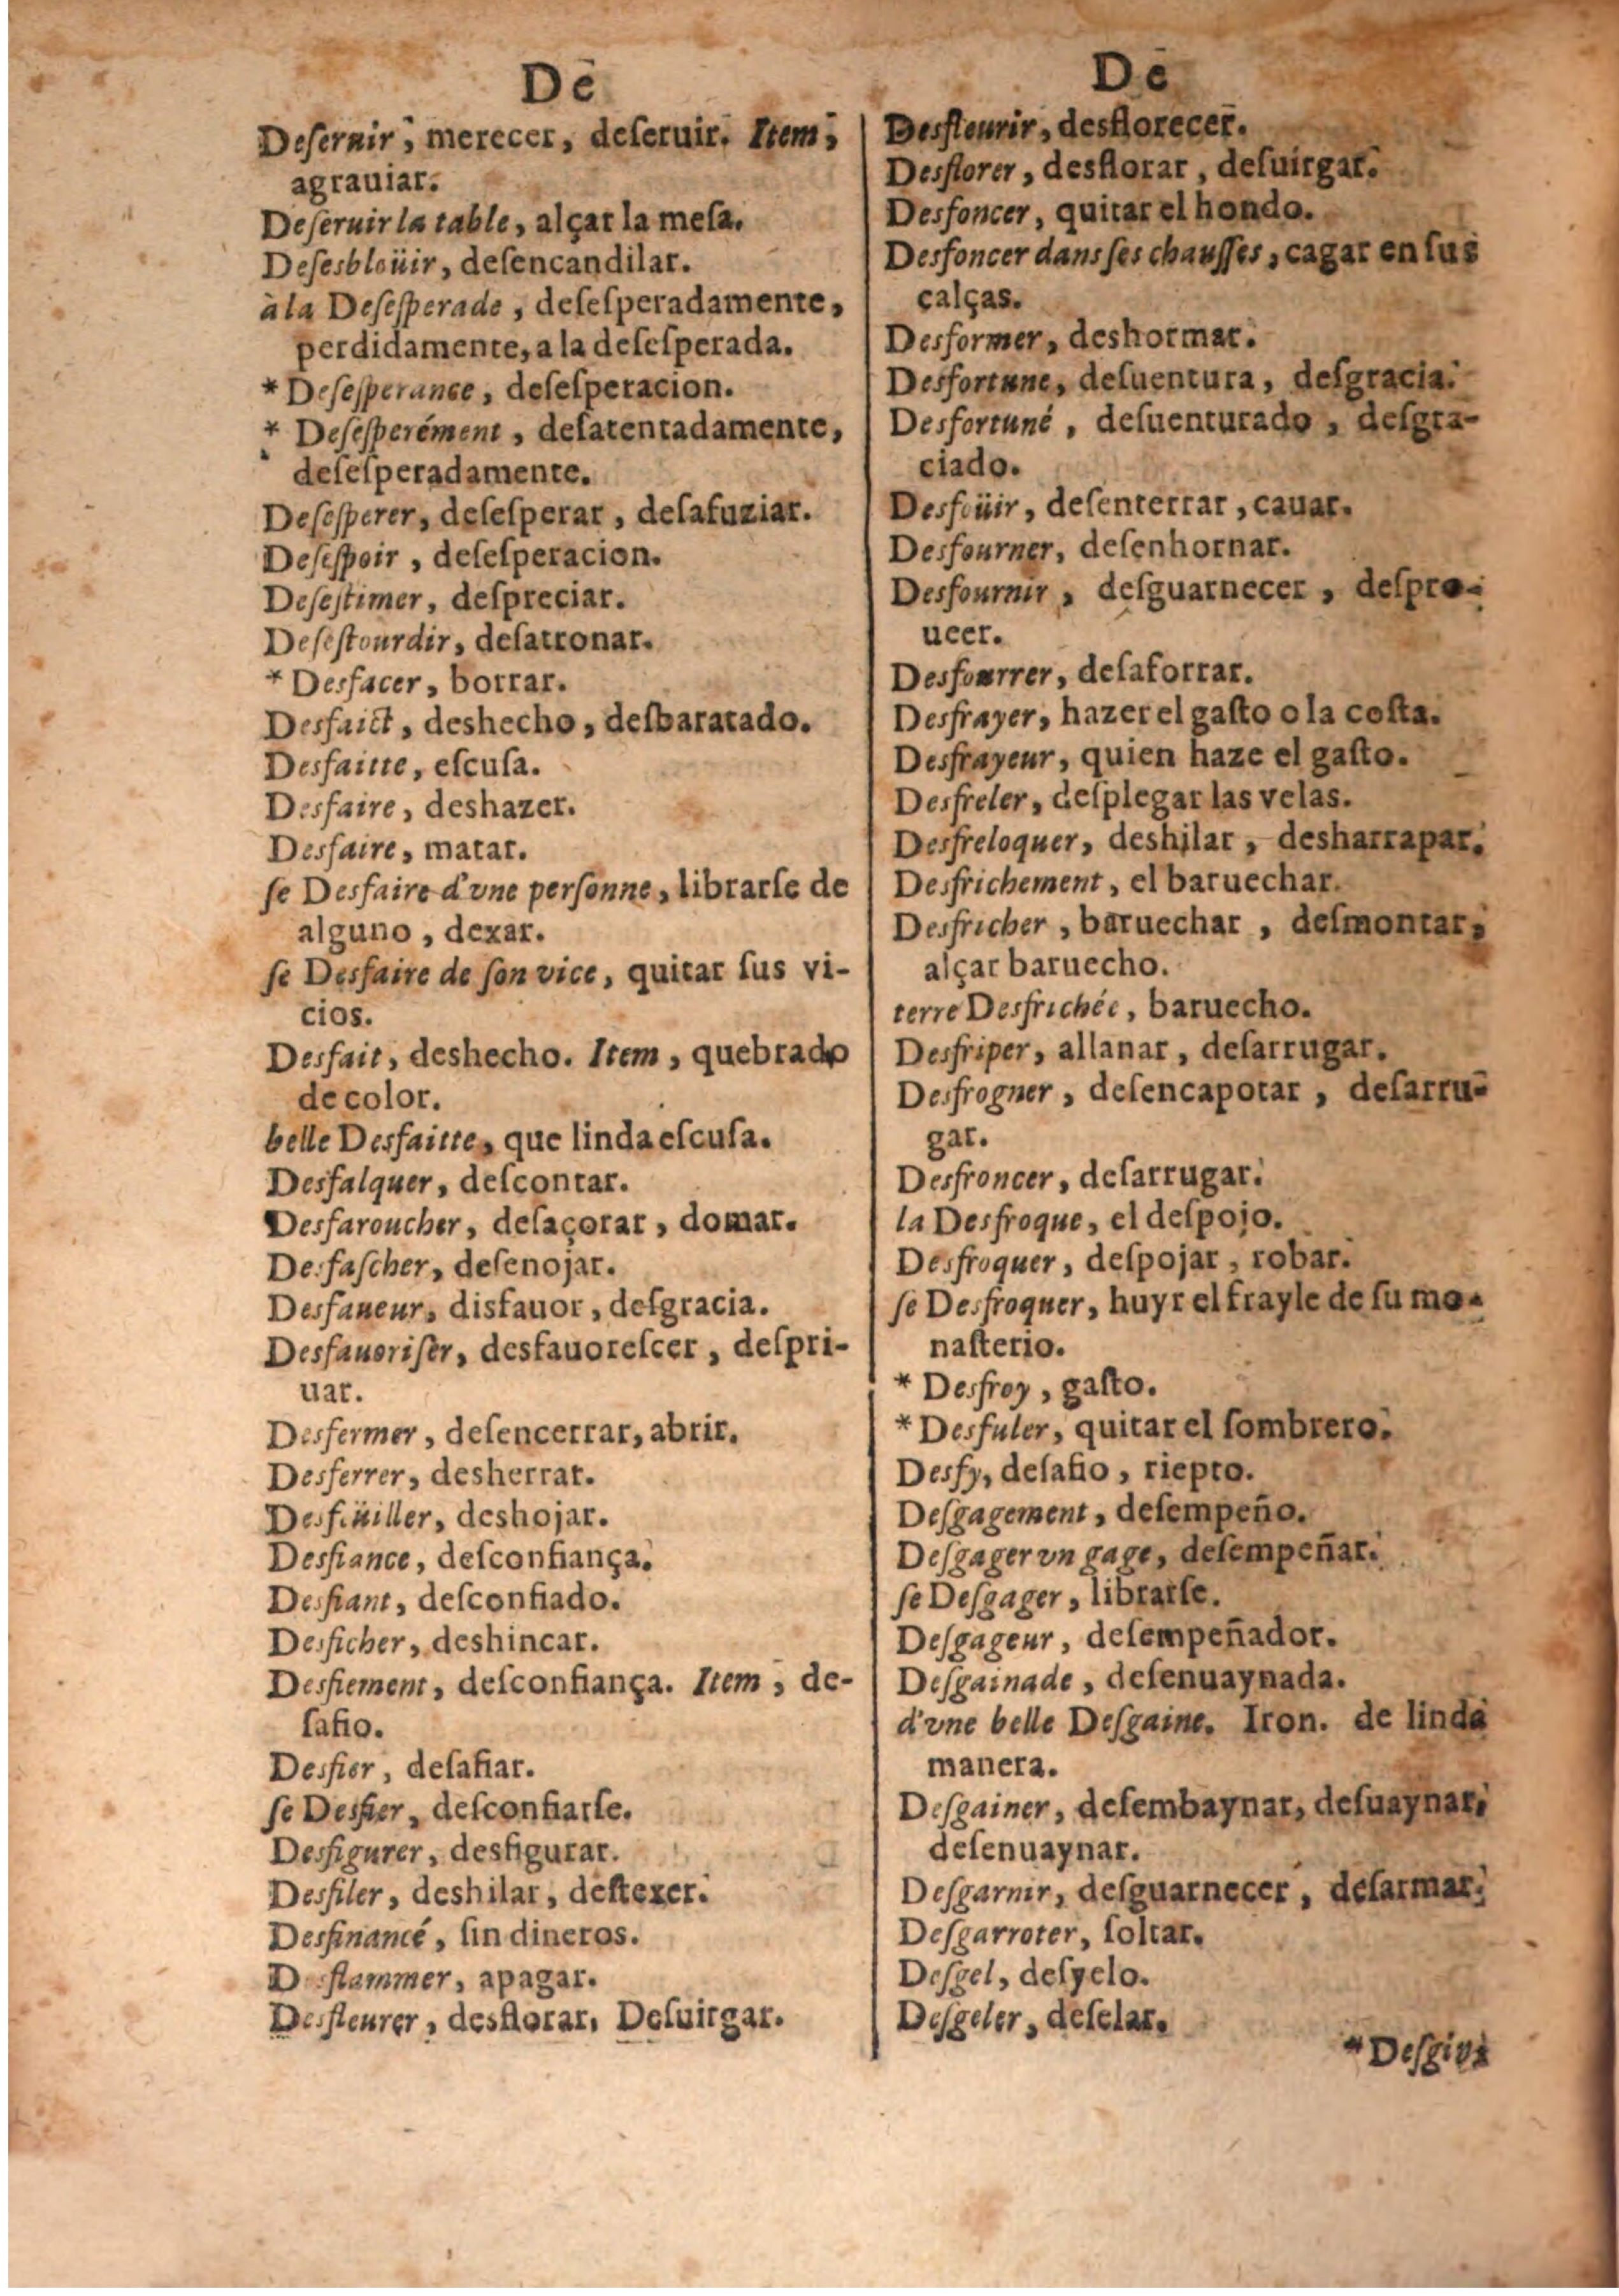 De
Deſeruir, merecer, deſeruir. Item,
agrauiar.
Deſeruir la table, alçar la meſa.
Deſesbloüir, deſencandilar.
à la Deſeſperade, deſeſperadamente,
perdidamente, a la deſeſperada.
* Deſeſperance, deſeſperacion.
* Deſeſperément, deſatentadamente,
deſeſperadamente.
Deſeſperer, deſeſperar, deſafuziar.
Deſeſpoir, deſeſperacion.
Deſeſtimer, deſpreciar.
Deſeſtourdir, deſatronar.
* Desfacer, borrar.
Desfaict, deshecho, desbaratado.
Desfaitte, eſcuſa.
Desfaire, deshazer.
Desfaire, matar.
ſe Desfaire d'vne perſonne, librarſe de
alguno, dexar.
ſe Desfaire de ſon vice, quitar ſus vi-
cios.
Desfait, deshecho. Item, quebrado
de color.
belle Desfaitte, que linda eſcuſa.
Desfalquer, deſcontar.
Desfaroucher, deſaçorar, domar.
Desfaſcher, deſenojar.
Desfaueur, disfauor, deſgracia.
Desfauoriſer, desfauoreſcer, deſpri-
uar.
Desfermer, deſencerrar, abrir.
Desferrer, desherrar.
Desfüiller, deshojar.
Desfiance, deſconfiança.
Desfiant, deſconfiado.
Desficher, deshincar.
Desfiement, deſconfiança. Item, de-
ſafio.
Desfier, deſafiar.
ſe Desfier, deſconfiarſe.
Desfigurer, desfigurar.
Desfiler, deshilar, deſtexer.
Desfinancé, ſin dineros.
Desflammer, apagar.
Desfleurer, desflorar, Deſuirgar.
De
Desfleurir, desflorecer.
Desflorer, desflorar, deſuirgar.
Desfoncer, quitar el hondo.
Desfoncer dans ſes chauſſes, cagar en ſus
calças.
Desformer, deshormar.
Desfortune, deſuentura, deſgracia.
Desfortuné, deſuenturado, deſgra-
ciado.
Desfoüir, deſenterrar, cauar.
Desfourner, deſenhornar.
Desfournir, deſguarnecer, deſpro-
ueer.
Desfourrer, deſaforrar.
Desfrayer, hazer el gaſto o la coſta.
Desfrayeur, quien haze el gaſto.
Desfreler, deſplegar las velas.
Desfreloquer, deshilar, desharrapar.
Desfrichement, el baruechar.
Desfricher, baruechar, deſmontar,
alçar baruecho.
terre Desfrichée, baruecho.
Desfriper, allanar, deſarrugar.
Desfrogner, deſencapotar, deſarru-
gar.
Desfroncer, deſarrugar.
la Desfroque, el deſpojo.
Desfroquer, deſpojar, robar.
ſe Desfroquer, huyr el frayle de ſu mo-
naſterio.
* Desfroy, gaſto.
* Desfuler, quitar el ſombrero.
Desfy, deſafio, riepto.
Deſgagement, deſempeño.
Deſgager vn gage, deſempeñar.
ſe Deſgager, librarſe.
Deſgageur, deſempeñador.
Deſgainade, deſenuaynada.
d'vne belle Deſgaine. Iron. de linda
manera.
Deſgainer, deſembaynar, deſuaynar,
deſenuaynar.
Deſgarnir, deſguarnecer, deſarmar.
Deſgarroter, ſoltar.
Deſgel, deſyelo.
Deſgeler, deſelar.